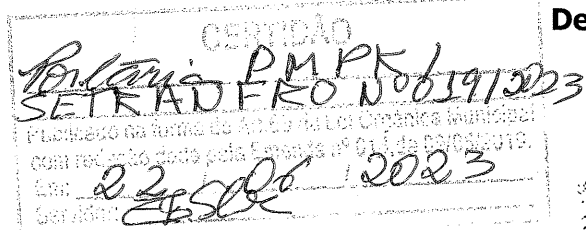 CERTIDÃO
De
Portaria PMPK/
SETRAN FRO Nº 019/2023
Publicado na forma do Art. 69 da Lei Orgânica Municipal
com redação dada pela Emenda nº 01
Em: 22 / 06 / 2023
Servidor: